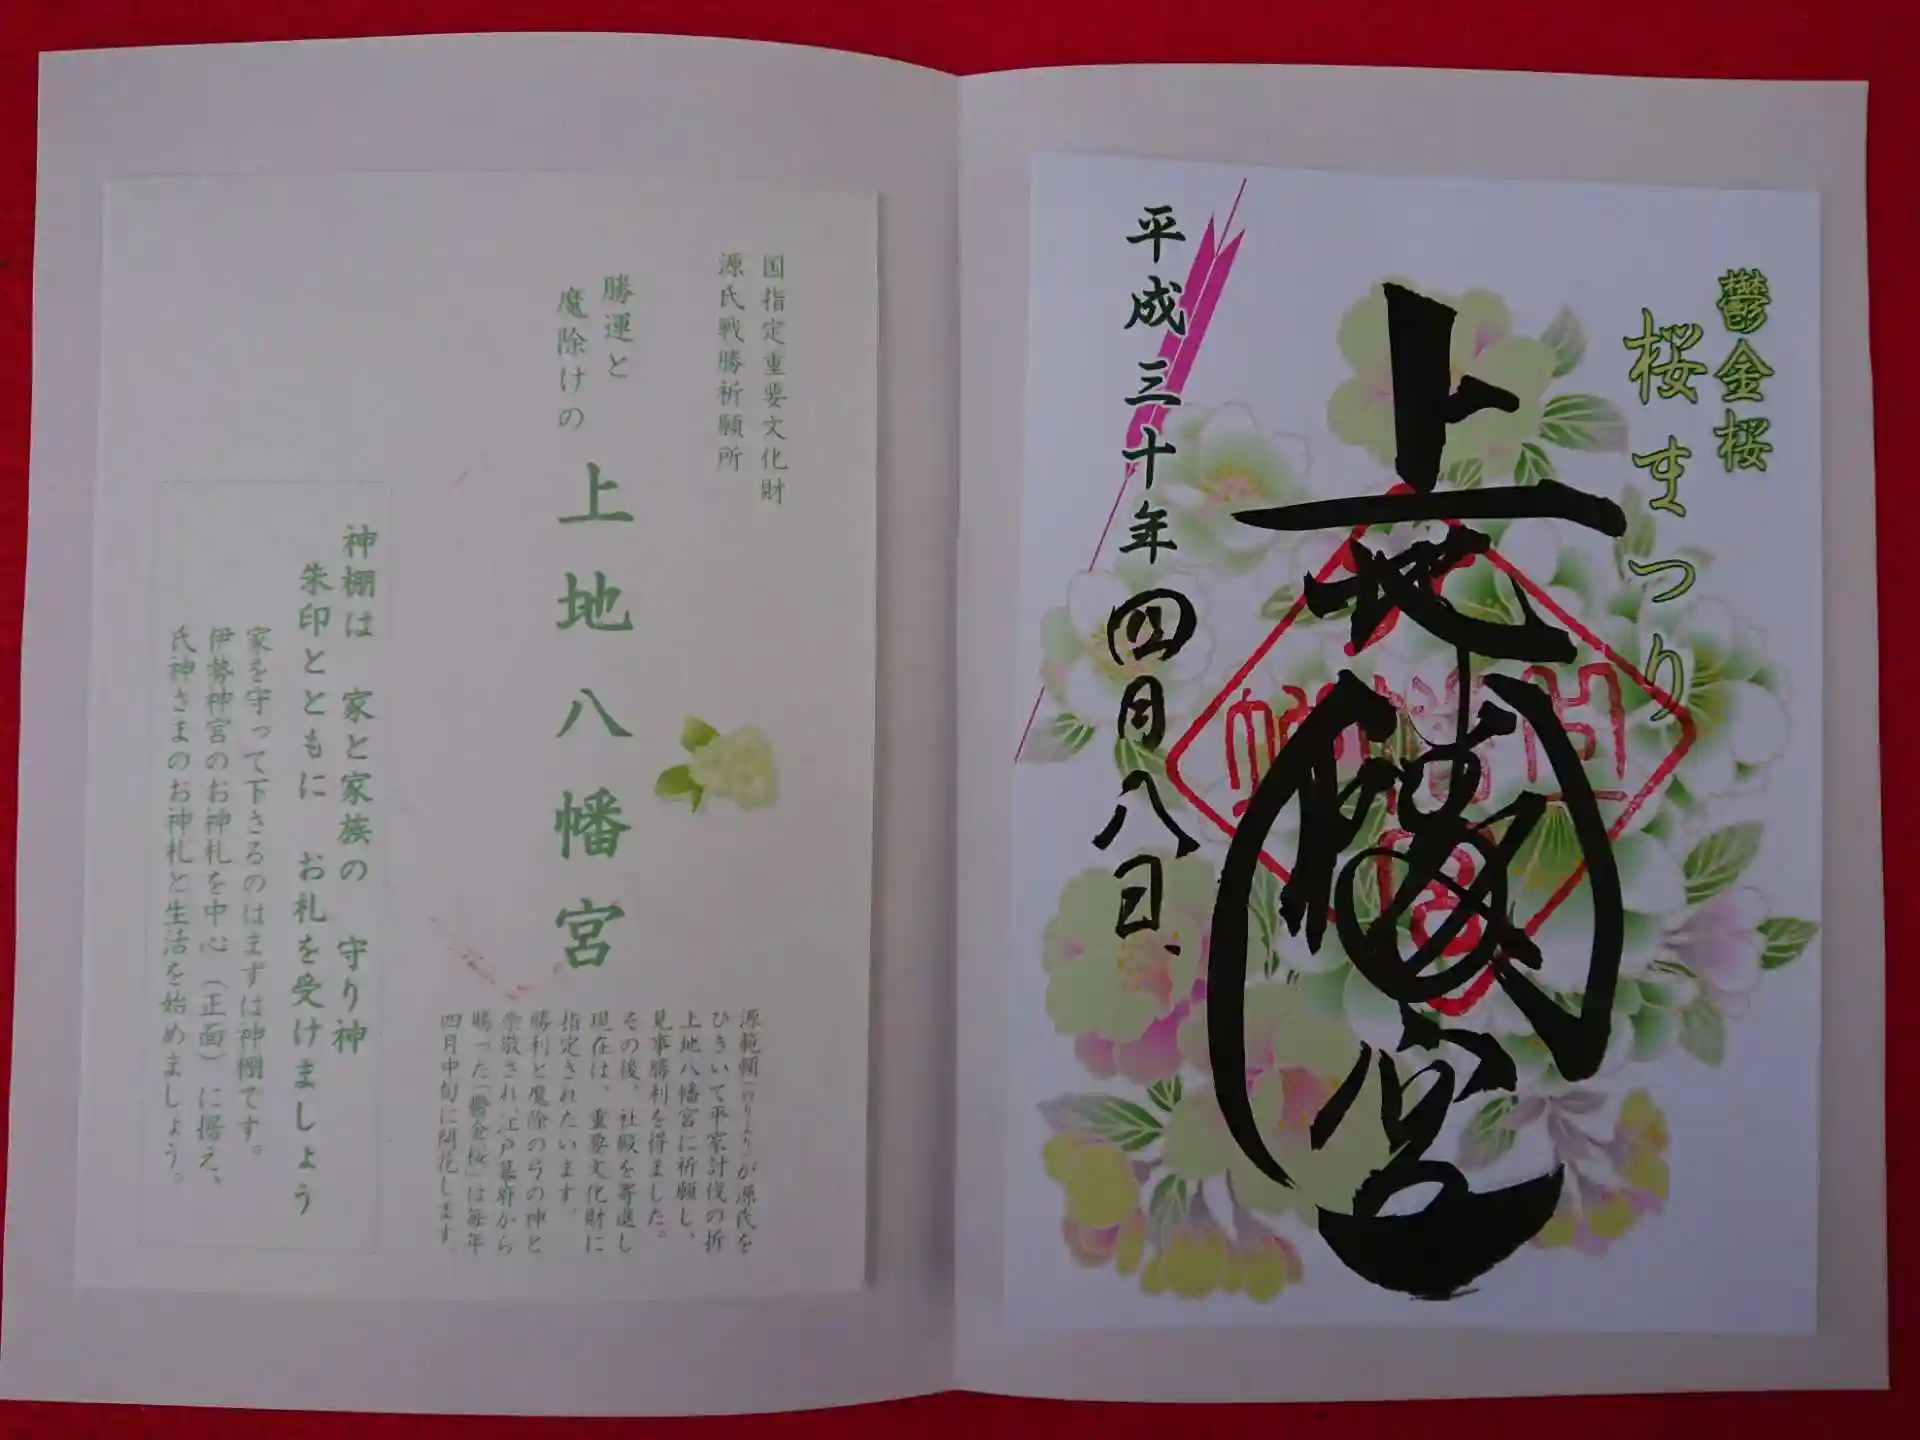 鬱金桜
桜まつり
上地八幡宮
平成三十年四月八日、
国指定重要文化財
源氏戦勝祈願所
勝運と
魔除けの
上地八幡宮
源範頼(のりより)が源氏を
ひきいて平家討伐の折
上地八幡宮に祈願し、
見事勝利を得ました。
その後、社殿を寄進し
現在は、重要文化財に
指定されたいます。
勝利と魔除の弓の神と
崇敬され、江戸幕府から
賜った「鬱金桜」は毎年
四月中旬に開花します。
神棚は 家と家族の 守り神
朱印とともに お札を受けましょう
家を守って下さるのはまずは神棚です。
伊勢神宮のお神札を中心(正面)に据え、
氏神さまのお神札と生活を始めましょう。